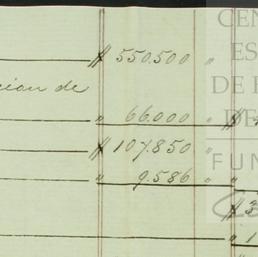 $ 550.500 "
cion de
" 66.000 " $
$ 107.850 "
" 9.586 "
$ 3
" 1
CEN
ES
DE
DE
FUN